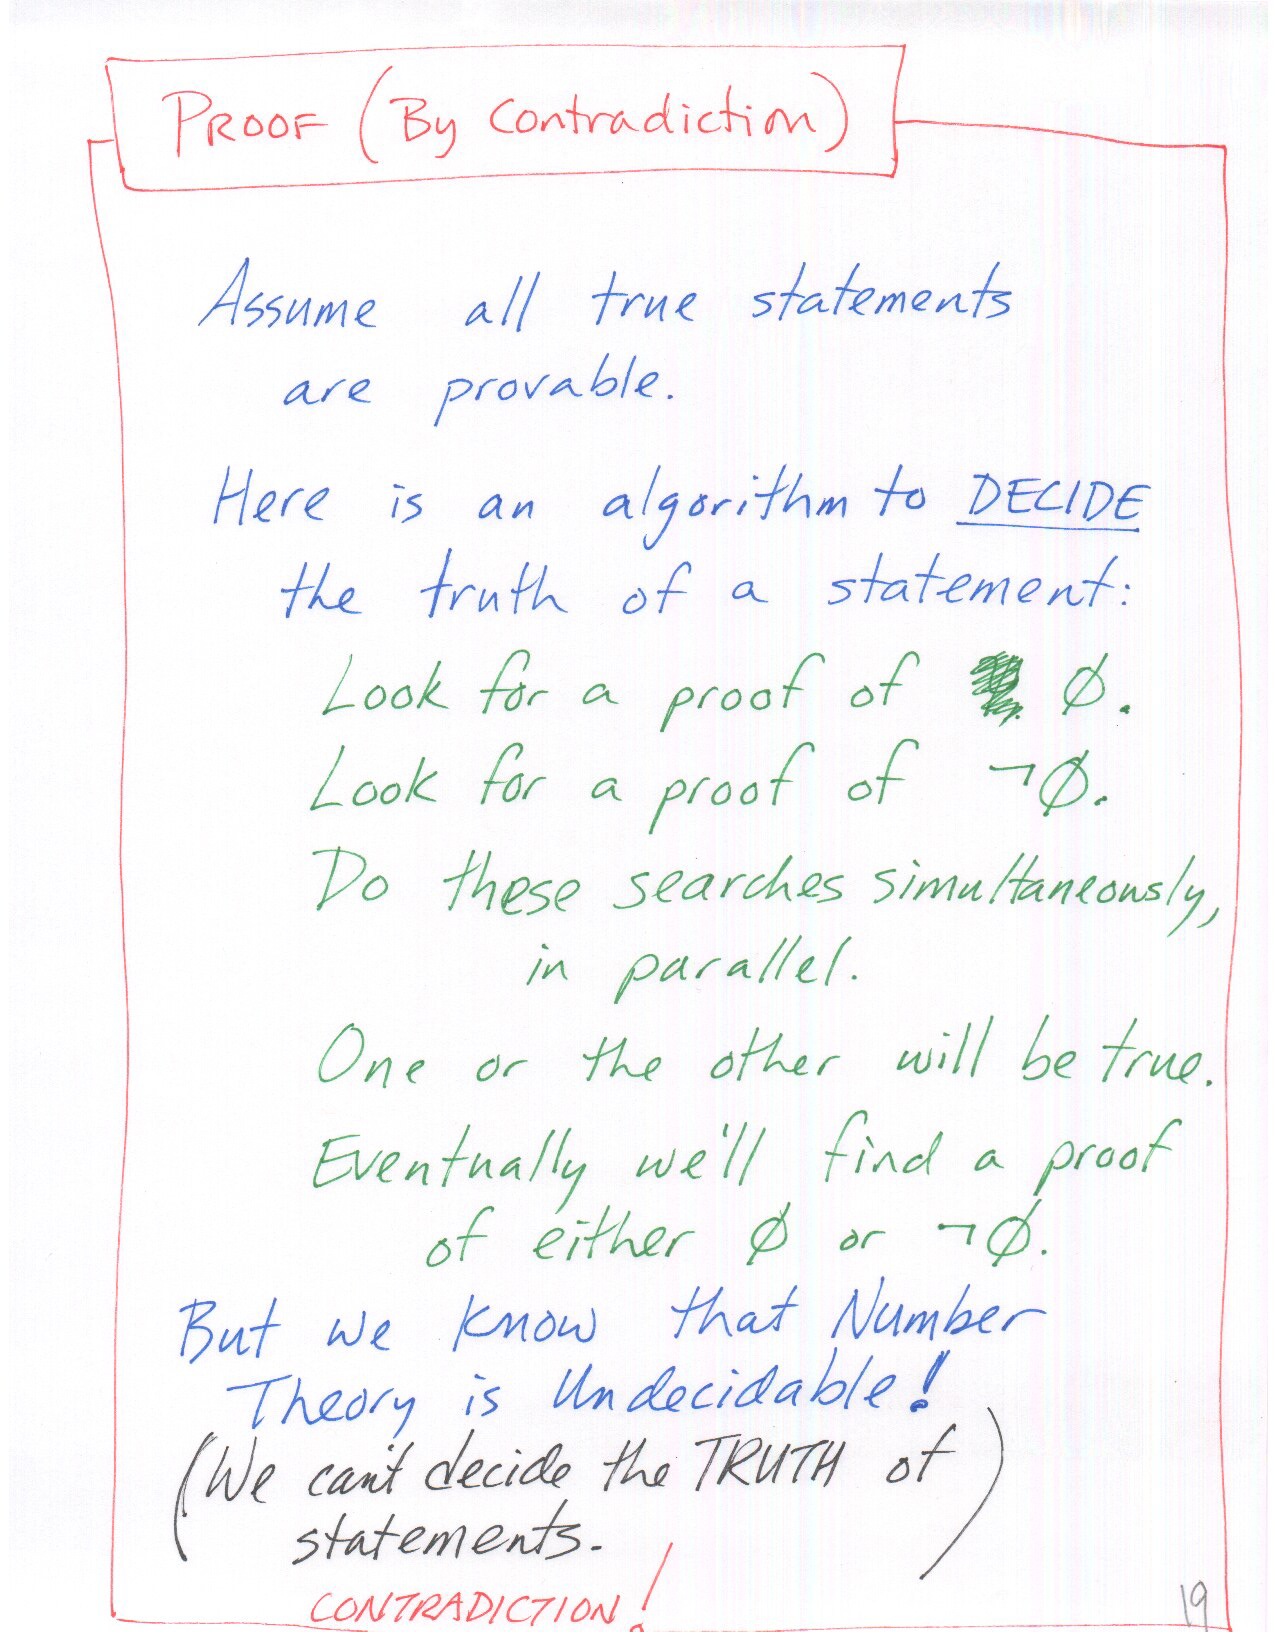 PROOF (By Contradiction)
Assume all true statements
are provable.
Here is an algorithm to DECIDE
the truth of a statement:
Look for a proof of ø.
Look for a proof of ¬ø.
Do these searches simultaneously,
in parallel.
One or the other will be true.
Eventually we'll find a proof
of either ø or ¬ø.
But we know that Number
Theory is Undecidable!
(We can't decide the TRUTH of
statements.)
CONTRADICTION!
19